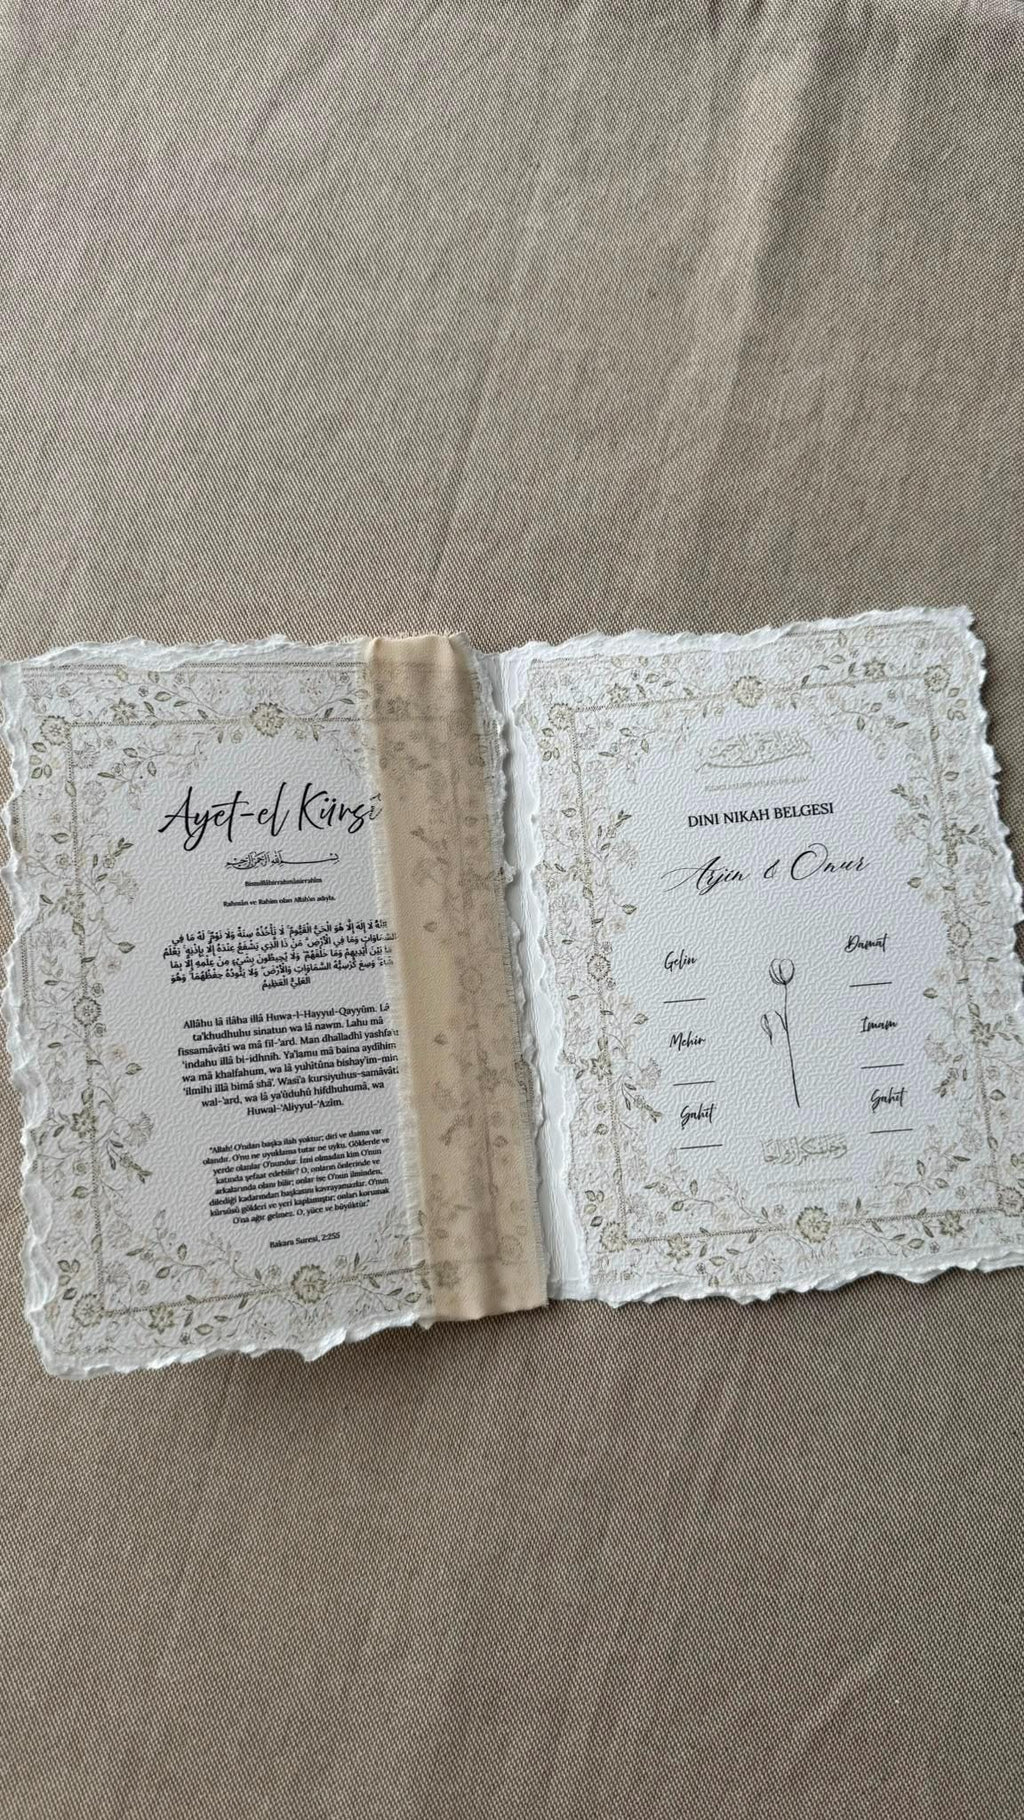 Ayet-el Kürsi
بسم الله الرحمن الرحيم
Bismillâhirrahmânirrahîm
Rahmân ve Rahîm olan Allah'ın adıyla.
اَللّٰهُ لَا إِلَهَ إِلَّا هُوَ الْحَيُّ الْقَيُّومُ ۚ لَا تَأْخُذُهُ سِنَةٌ وَلَا نَوْمٌ ۚ لَهُ مَا فِي
السَّمَاوَاتِ وَمَا فِي الْأَرْضِ ۗ مَنْ ذَا الَّذِي يَشْفَعُ عِنْدَهُ إِلَّا بِإِذْنِهِ ۚ يَعْلَمُ
مَا بَيْنَ أَيْدِيهِمْ وَمَا خَلْفَهُمْ ۖ وَلَا يُحِيطُونَ بِشَيْءٍ مِنْ عِلْمِهِ إِلَّا بِمَا
شَاءَ ۚ وَسِعَ كُرْسِيُّهُ السَّمَاوَاتِ وَالْأَرْضَ ۖ وَلَا يَئُودُهُ حِفْظُهُمَا ۚ وَهُوَ
الْعَلِيُّ الْعَظِيمُ
Allâhu lâ ilâha illâ Huwa-l-Hayyul-Qayyûm. Lâ
ta'khudhuhu sinatun wa lâ nawm. Lahu mâ
fissamâvâti wa mâ fil-'ard. Man dhalladhî yashfa'u
'indahu illâ bi-idhnih. Ya'lamu mâ baina aydîhim
wa mâ khalfahum, wa lâ yuhîtûna bishay'im-min
'ilmihî illâ bimâ shâ'. Wasi'a kursiyuhus-samâvâti
wal-'ard, wa lâ ya'ûduhû hifdhuhumâ, wa
Huwal-'Aliyyul-'Azîm.
"Allah! O'ndan başka ilah yoktur; diri ve daima var
olandır. O'nu ne uyuklama tutar ne uyku. Göklerde ve
yerde olanlar O'nundur. İzni olmadan kim O'nun
katında şefaat edebilir? O, onların önlerinde ve
arkalarında olanı bilir; onlar ise O'nun ilminden,
dilediği kadarından başkasını kavrayamazlar. O'nun
kürsüsü gökleri ve yeri kaplamıştır; onları korumak
O'na ağır gelmez. O, yüce ve büyüktür."
Bakara Suresi, 2:255
DINI NIKAH BELGESI
Arjin & Onur
Gelin
Damat
Mehir
Imam
Şahit
Şahit
وَخَلَقْنَاكُمْ أَزْوَاجًا